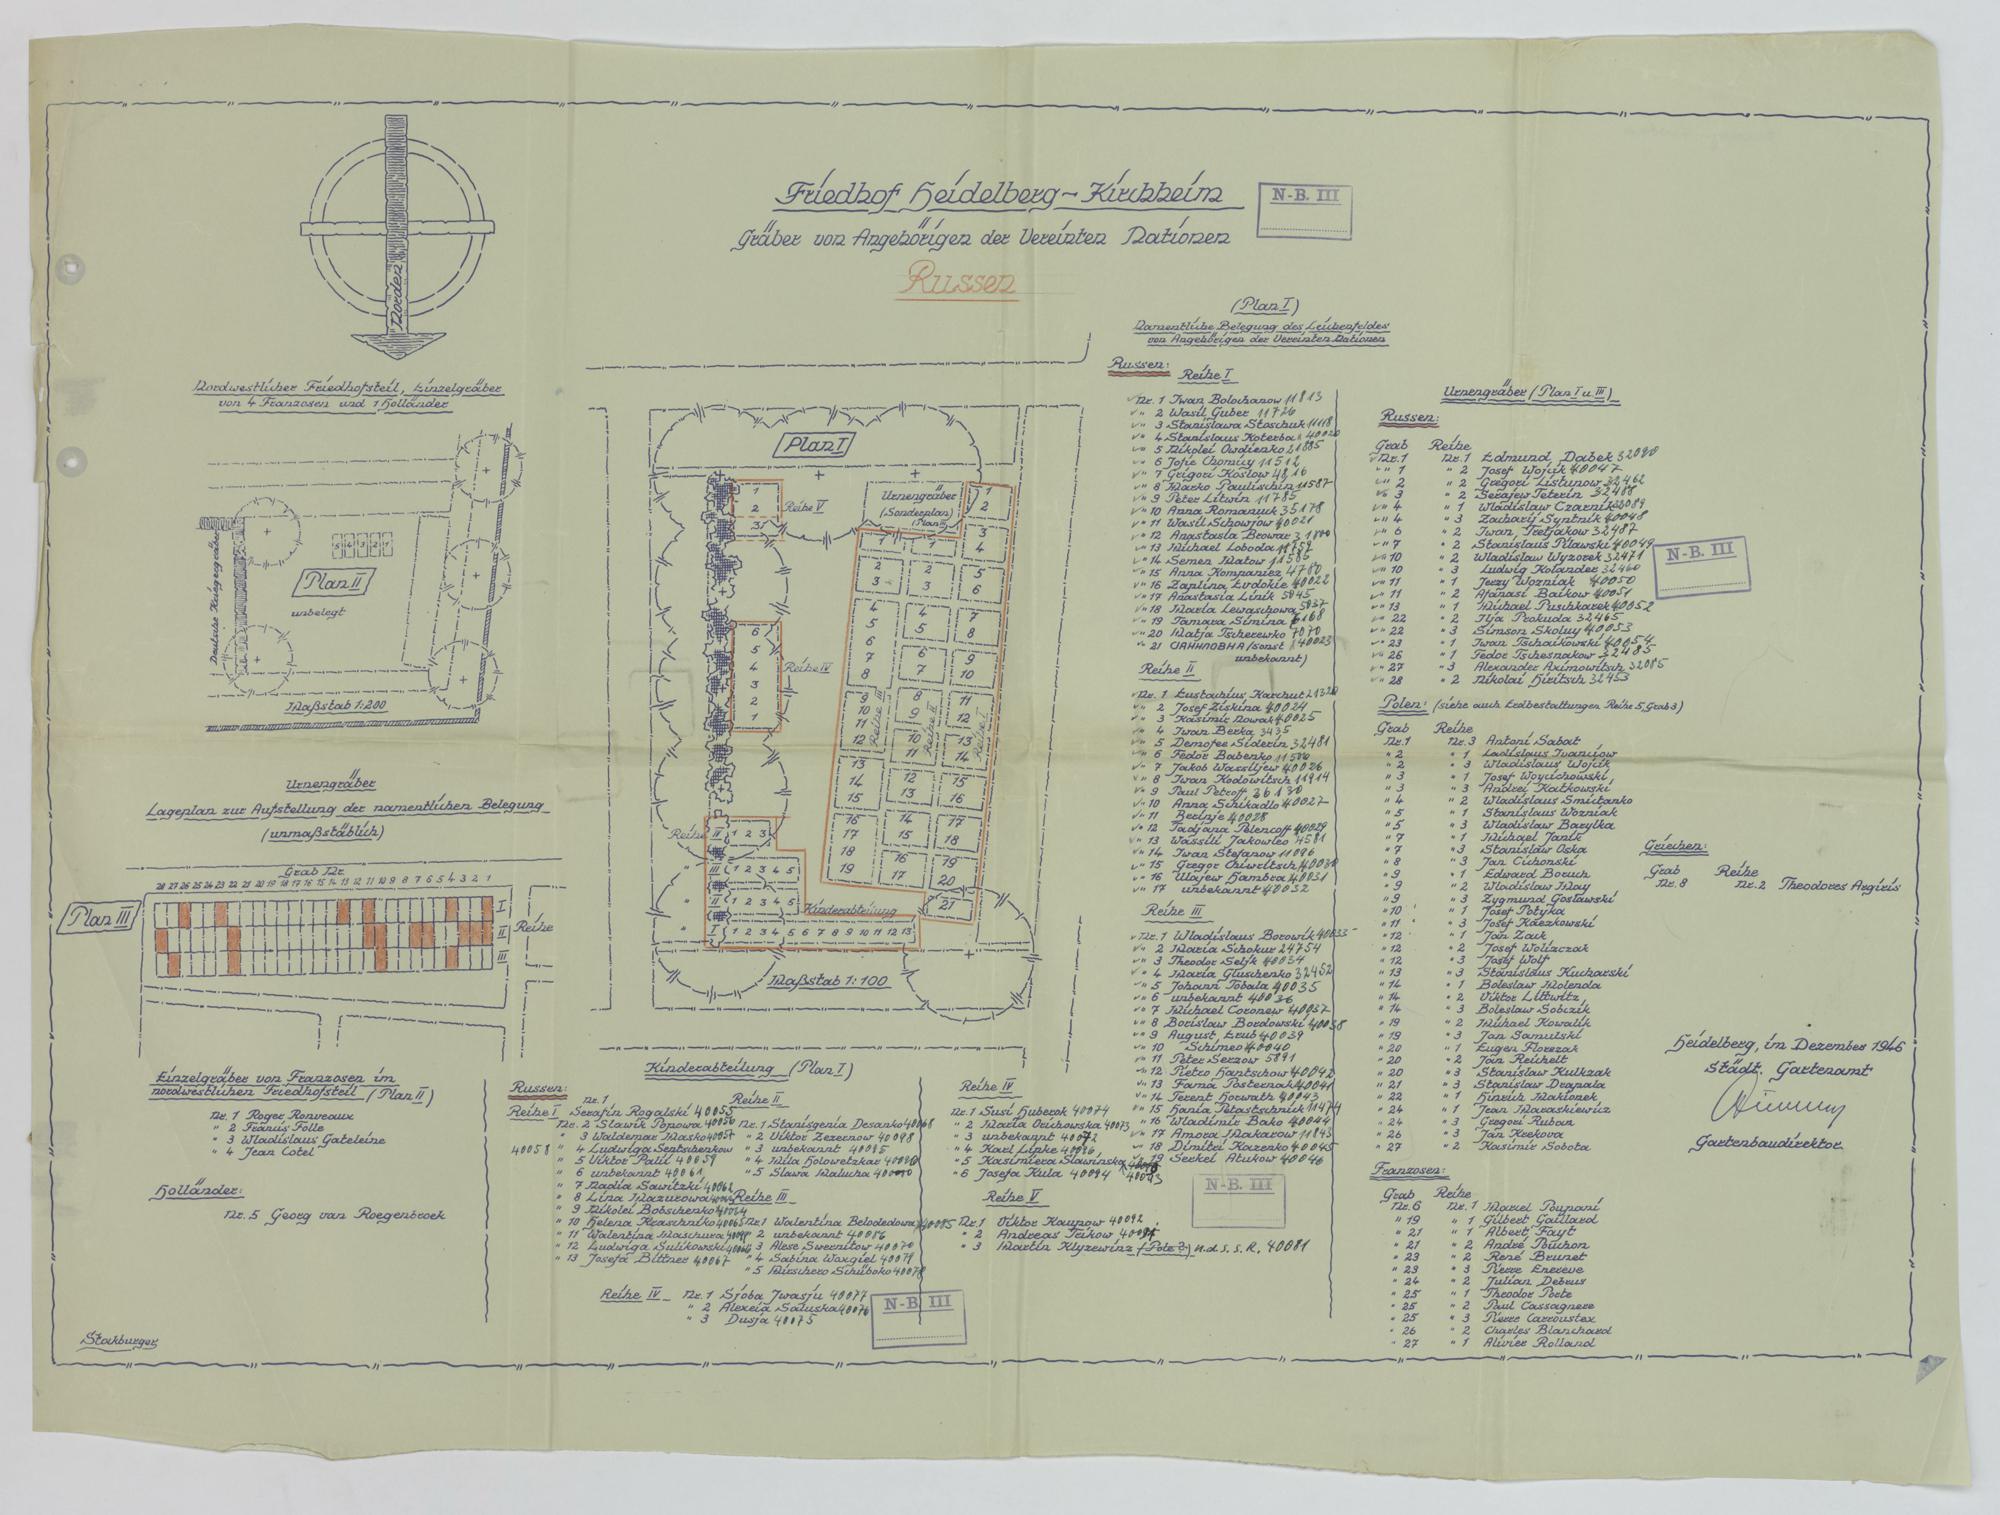 Friedhof Heidelberg-Kirchheim
N-B. III
Gräber von Angehörigen der Vereinten Nationen
Russen
Norden
Nordwestlicher Friedhofsteil, Einzelgräber
von 4 Franzosen und 1 Holländer
Deutsche Kriegergräber
Plan II
unbelegt
Maßstab 1:200
Urnengräber
Lageplan zur Aufstellung der namentlichen Belegung
(unmaßstäblich)
Grab Nr.
28 27 26 25 24 23 22 21 20 19 18 17 16 15 14 13 12 11 10 9 8 7 6 5 4 3 2 1
Plan III
I
II
III
Reihe
Einzelgräber von Franzosen im
nordwestlichen Friedhofsteil (Plan II)
Nr. 1 Roger Ronveaux
" 2 Francis Folle
" 3 Wladislaus Gateleine
" 4 Jean Cotel
Holländer:
Nr. 5 Georg van Roegenbroek
Stakburger
Plan I
Urnengräber
(Sonderplan)
(Plan III)
Reihe V
Reihe IV
Reihe III
Reihe II
Reihe I
Kinderabteilung
Maßstab 1:100
Kinderabteilung (Plan I)
Russen:
Reihe I
Nr. 1
Serafin Rogalski 40055
Nr. 2 Slawik Popowa 40056
" 3 Waldemar Masko 40057
40058 " 4 Ludwiga Sentschenkow
" 5 Viktor Palii 40059
" 6 unbekannt 40061
" 7 Nadia Sawitzki 40062
" 8 Lina Mazurowa
" 9 Nikolei Bobschenko 40064
" 10 Helena Kraschniko 40065
" 11 Walentina Maschura
" 12 Ludwiga Sulikowski
" 13 Josefa Bittner 40067
Reihe II
Nr. 1 Stanisgenia Desanko 40068
" 2 Viktor Zezernow
" 3 unbekannt 40095
" 4 Mila Holowetzkar
" 5 Slawa Malucha
Reihe III
Nr. 1 Walentina Belodedowa 40085
" 2 unbekannt 40086
" 3 Alese Swernitow 40070
" 4 Sabina Wozgiel 40079
" 5 Mirschero Schüboko 40078
Reihe IV
Nr. 1 Sjoba Jwasju 40077
" 2 Alexeia Saluska 40076
" 3 Dusja 40075
N-B. III
Reihe IV
Nr. 1 Susi Huberok 40074
" 2 Maria Orichowska 40073
" 3 unbekannt 40072
" 4 Karl Lipke
" 5 Kasimiera Slawinska
" 6 Josefa Kula 40094
Reihe V
Nr. 1 Viktor Kaupow 40092
" 2 Andreas Teikow 40091
" 3 Martin Klyzewinz (Pole?) U.d.S.S.R. 40081
(Plan I)
Namentliche Belegung des Leichenfeldes
von Angehörigen der Vereinten Nationen
Russen:
Reihe I
Nr. 1 Iwan Bolochanow 11813
" 2 Wasil Guber 11726
" 3 Stanislawa Stoschuk 11118
" 4 Stanislaus Koterba 40020
" 5 Nikolei Owdienko 21885
" 6 Jofie Chomicy 11512
" 7 Grigori Koslow 4816
" 8 Marko Paulischin 11587
" 9 Peter Litwin 11785
" 10 Anna Romaniuk 35178
" 11 Wasil Schowjow 40021
" 12 Anastasia Browar
" 13 Michael Loboda 11757
" 14 Semen Matow 11585
" 15 Anna Kompaniez 4780
" 16 Zaplina Evdokie 40022
" 17 Anastasia Linik 5845
" 18 Maria Lewaschowa 5837
" 19 Tamara Simina 6168
" 20 Natja Tscherewko 7070
" 21 ДАНИЛОВНА (sonst 40023
unbekannt)
Reihe II
Nr. 1 Eustachius Karchut
" 2 Josef Ziskina 40024
" 3 Kasimir Nowak 40025
" 4 Iwan Berka 3435
" 5 Demofee Siderin 32481
" 6 Fedor Babenko
" 7 Jakob Wassiljew 40026
" 8 Iwan Kodowitsch 11914
" 9 Paul Petroff 36130
" 10 Anna Schikadlo 40027
" 11 Berinje 40028
" 12 Tadjana Polencoff 40029
" 13 Wassili Jakowleo 4581
" 14 Iwan Stefanow 11096
" 15 Gregor Chiwritsch 40030
" 16 Wajew Hambra 40031
" 17 unbekannt 40032
Reihe III
Nr. 1 Wladislaus Borowik 40033
" 2 Maria Schokur 24754
" 3 Theodor Seljk 40034
" 4 Maria Gluschenko 32452
" 5 Johann Tobala 40035
" 6 unbekannt 40036
" 7 Michael Coronew 40037
" 8 Borislaw Bordowski 40038
" 9 August, Erub 40039
" 10 Schimeo 40040
" 11 Peter Serzow 5891
" 12 Pietro Hantschow 40042
" 13 Fama Posternak 40041
" 14 Terent Horwath 40043
" 15 Hania Petastschnik 11474
" 16 Wladimir Bako 40044
" 17 Amora Makarow 11843
" 18 Dimitri Kazenko 40045
" 19 Serkei Atukow 40046
N-B. III
Urnengräber (Plan I u. III)
Russen:
Grab Reihe
Nr. 1 Nr. 1 Edmund Dabek
" 1 " 2 Josef Wojcik 40047
" 2 " 2 Gregori Listunow 32462
" 3 " 2 Serajew Teterin 32488
" 4 " 1 Wladislaw Czarnik
" 4 " 3 Zacharij Syntnik 40048
" 6 " 2 Iwan Tretjakow 32487
" 7 " 2 Stanislaus Pilawski 40049
" 10 " 2 Wladislaw Wyzorek 32471
" 10 " 3 Ludwig Kolander 32460
" 11 " 1 Jerzy Wozniak 40050
" 11 " 2 Afanasi Baikow 40051
" 13 " 1 Michael Puschkarek 40052
" 22 " 2 Ilja Prokuda 32465
" 22 " 3 Simson Skoluy 40053
" 23 " 1 Iwan Tschaikowski 40054
" 26 " 1 Fedor Tschesnakow 32485
" 27 " 3 Alexander Aximowitsch 32085
" 28 " 2 Nikolai Hiritsch 32453
N-B. III
Polen: (siehe auch Erdbestattungen Reihe 5, Grab 3)
Grab Reihe
Nr. 1 Nr. 3 Antoni Sabat
" 2 " 1 Ladislaus Ivanijow
" 2 " 3 Wladislaus Wojcik
" 3 " 1 Josef Woycichowski,
" 3 " 3 Andrei Katkowski
" 4 " 2 Wladislaus Smietanko
" 5 " 1 Stanislaus Wozniak
" 5 " 3 Wladislaw Barylka
" 7 " 1 Michael Janik
" 7 " 3 Stanislaw Oska
" 8 " 3 Jan Cichonski
" 9 " 1 Edward Boruch
" 9 " 2 Wladislaw May
" 9 " 3 Zygmund Goslawski
" 10 " 1 Josef Potyka
" 11 " 3 Josef Kaczkowski
" 12 " 1 Jan Zack
" 12 " 2 Josef Wolizczak
" 12 " 3 Josef Wolf
" 13 " 3 Stanislaus Kucharski
" 14 " 1 Boleslaw Molenda
" 14 " 2 Viktor Littwitz,
" 14 " 3 Boleslaw Sobczik
" 19 " 2 Michael Kowalik
" 19 " 3 Jan Samulski
" 20 " 1 Eugen Florczak
" 20 " 2 Jan Reichelt
" 20 " 3 Stanislaw Kulkzak
" 21 " 3 Stanislaw Drapala
" 22 " 1 Hinrich Makionek
" 24 " 1 Jean Maraskiewicz
" 24 " 3 Gregori Ruban
" 26 " 3 Jan Krekova
" 27 " 2 Kasimir Sobota
Franzosen:
Grab Reihe
Nr. 6 Nr. 1 Marcel Poupani
" 19 " 1 Gilbert Gaillard
" 21 " 1 Albert Fayt
" 21 " 2 André Pouchon
" 23 " 2 René Brunet
" 23 " 3 Pierre Enereve
" 24 " 2 Julian Debrus
" 25 " 1 Theodor Porte
" 25 " 2 Paul Cassagnere
" 25 " 3 Pierre Carroustex
" 26 " 2 Charles Blanchard
" 27 " 1 Alivier Rolland
Griechen:
Grab Reihe
Nr. 8 Nr. 2 Theodores Argiris
Heidelberg, im Dezember 1946
Städt. Gartenamt
Gartenbaudirektor